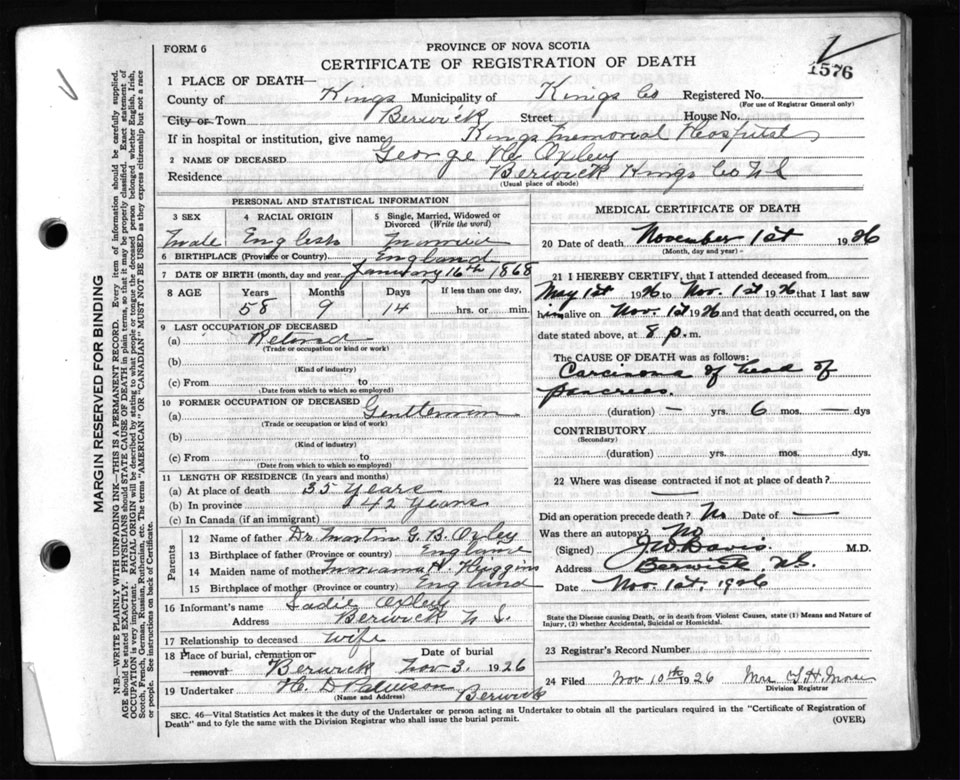 FORM 6
PROVINCE OF NOVA SCOTIA
CERTIFICATE OF REGISTRATION OF DEATH
1576
1 PLACE OF DEATH—
County of Kings Municipality of Kings Co Registered No.
(For use of Registrar General only)
City or Town Berwick Street
If in hospital or institution, give name Kings Memorial Hospital
2 NAME OF DECEASED George H Oxley
Residence Berwick Kings Co N S
(Usual place of abode)
PERSONAL AND STATISTICAL INFORMATION
3 SEX 4 RACIAL ORIGIN 5 Single, Married, Widowed or Divorced (Write the word)
Male English Married
6 BIRTHPLACE (Province or Country) England
7 DATE OF BIRTH (month, day and year) January 16th 1868
8 AGE Years Months Days If less than one day,
58 9 14 hrs. or min.
9 LAST OCCUPATION OF DECEASED
(a) Retired
(Trade or occupation or kind or work)
(b)
(Kind of industry)
(c) From to
(Date from which to which so employed)
10 FORMER OCCUPATION OF DECEASED
(a) Gentleman
(Trade or occupation or kind or work)
(b)
(Kind of industry)
(c) From to
(Date from which to which so employed)
11 LENGTH OF RESIDENCE (In years and months)
(a) At place of death 35 Years
(b) In province 42 Years
(c) In Canada (if an immigrant)
Parents
12 Name of father Dr. Martin G. B. Oxley
13 Birthplace of father (Province or country) England
14 Maiden name of mother H. Huggins
15 Birthplace of mother (Province or country) England
16 Informant's name Sadie Oxley
Address Berwick N S.
17 Relationship to deceased Wife
18 Place of burial, cremation or removal Berwick Date of burial Nov 3. 1926
19 Undertaker H. D. Berwick
(Name and Address)
MEDICAL CERTIFICATE OF DEATH
20 Date of death November 1st 1926
(Month, day and year)
21 I HEREBY CERTIFY, that I attended deceased from
May 1st 1926 to Nov. 1st 1926 that I last saw
him alive on Nov. 1st 1926 and that death occurred, on the
date stated above, at 8 p.m.
The CAUSE OF DEATH was as follows:
Carcinoma of head of
pancreas.
(duration) — yrs. 6 mos. — dys
CONTRIBUTORY
(Secondary)
(duration) yrs. mos. dys.
22 Where was disease contracted if not at place of death?
—
Did an operation precede death? No Date of —
Was there an autopsy? No
(Signed) J. W. Davis. M.D.
Address Berwick, N.S.
Date Nov. 1st, 1926
State the Disease causing Death, or in death from Violent Causes, state (1) Means and Nature of
Injury, (2) whether Accidental, Suicidal or Homicidal.
23 Registrar's Record Number
24 Filed Nov 10th 1926 Mrs
Division Registrar
SEC. 46—Vital Statistics Act makes it the duty of the Undertaker or person acting as Undertaker to obtain all the particulars required in the "Certificate of Registration of
Death" and to fyle the same with the Division Registrar who shall issue the burial permit.
(OVER)
MARGIN RESERVED FOR BINDING
N.B.—WRITE PLAINLY WITH UNFADING INK—THIS IS A PERMANENT RECORD. Every item of information should be carefully supplied.
AGE should be stated EXACTLY. PHYSICIANS should STATE CAUSE OF DEATH in plain terms, so that it may be properly classified. Exact statement of
OCCUPATION is very important. RACIAL ORIGIN will be described by stating to what people or tongue the deceased person belonged whether English, Irish,
Scotch, French, German, Russian, Ruthenian, etc. The terms "AMERICAN" OR "CANADIAN" MUST NOT BE USED as they express citizenship but not a race
or people. See instructions on back of Certificate.